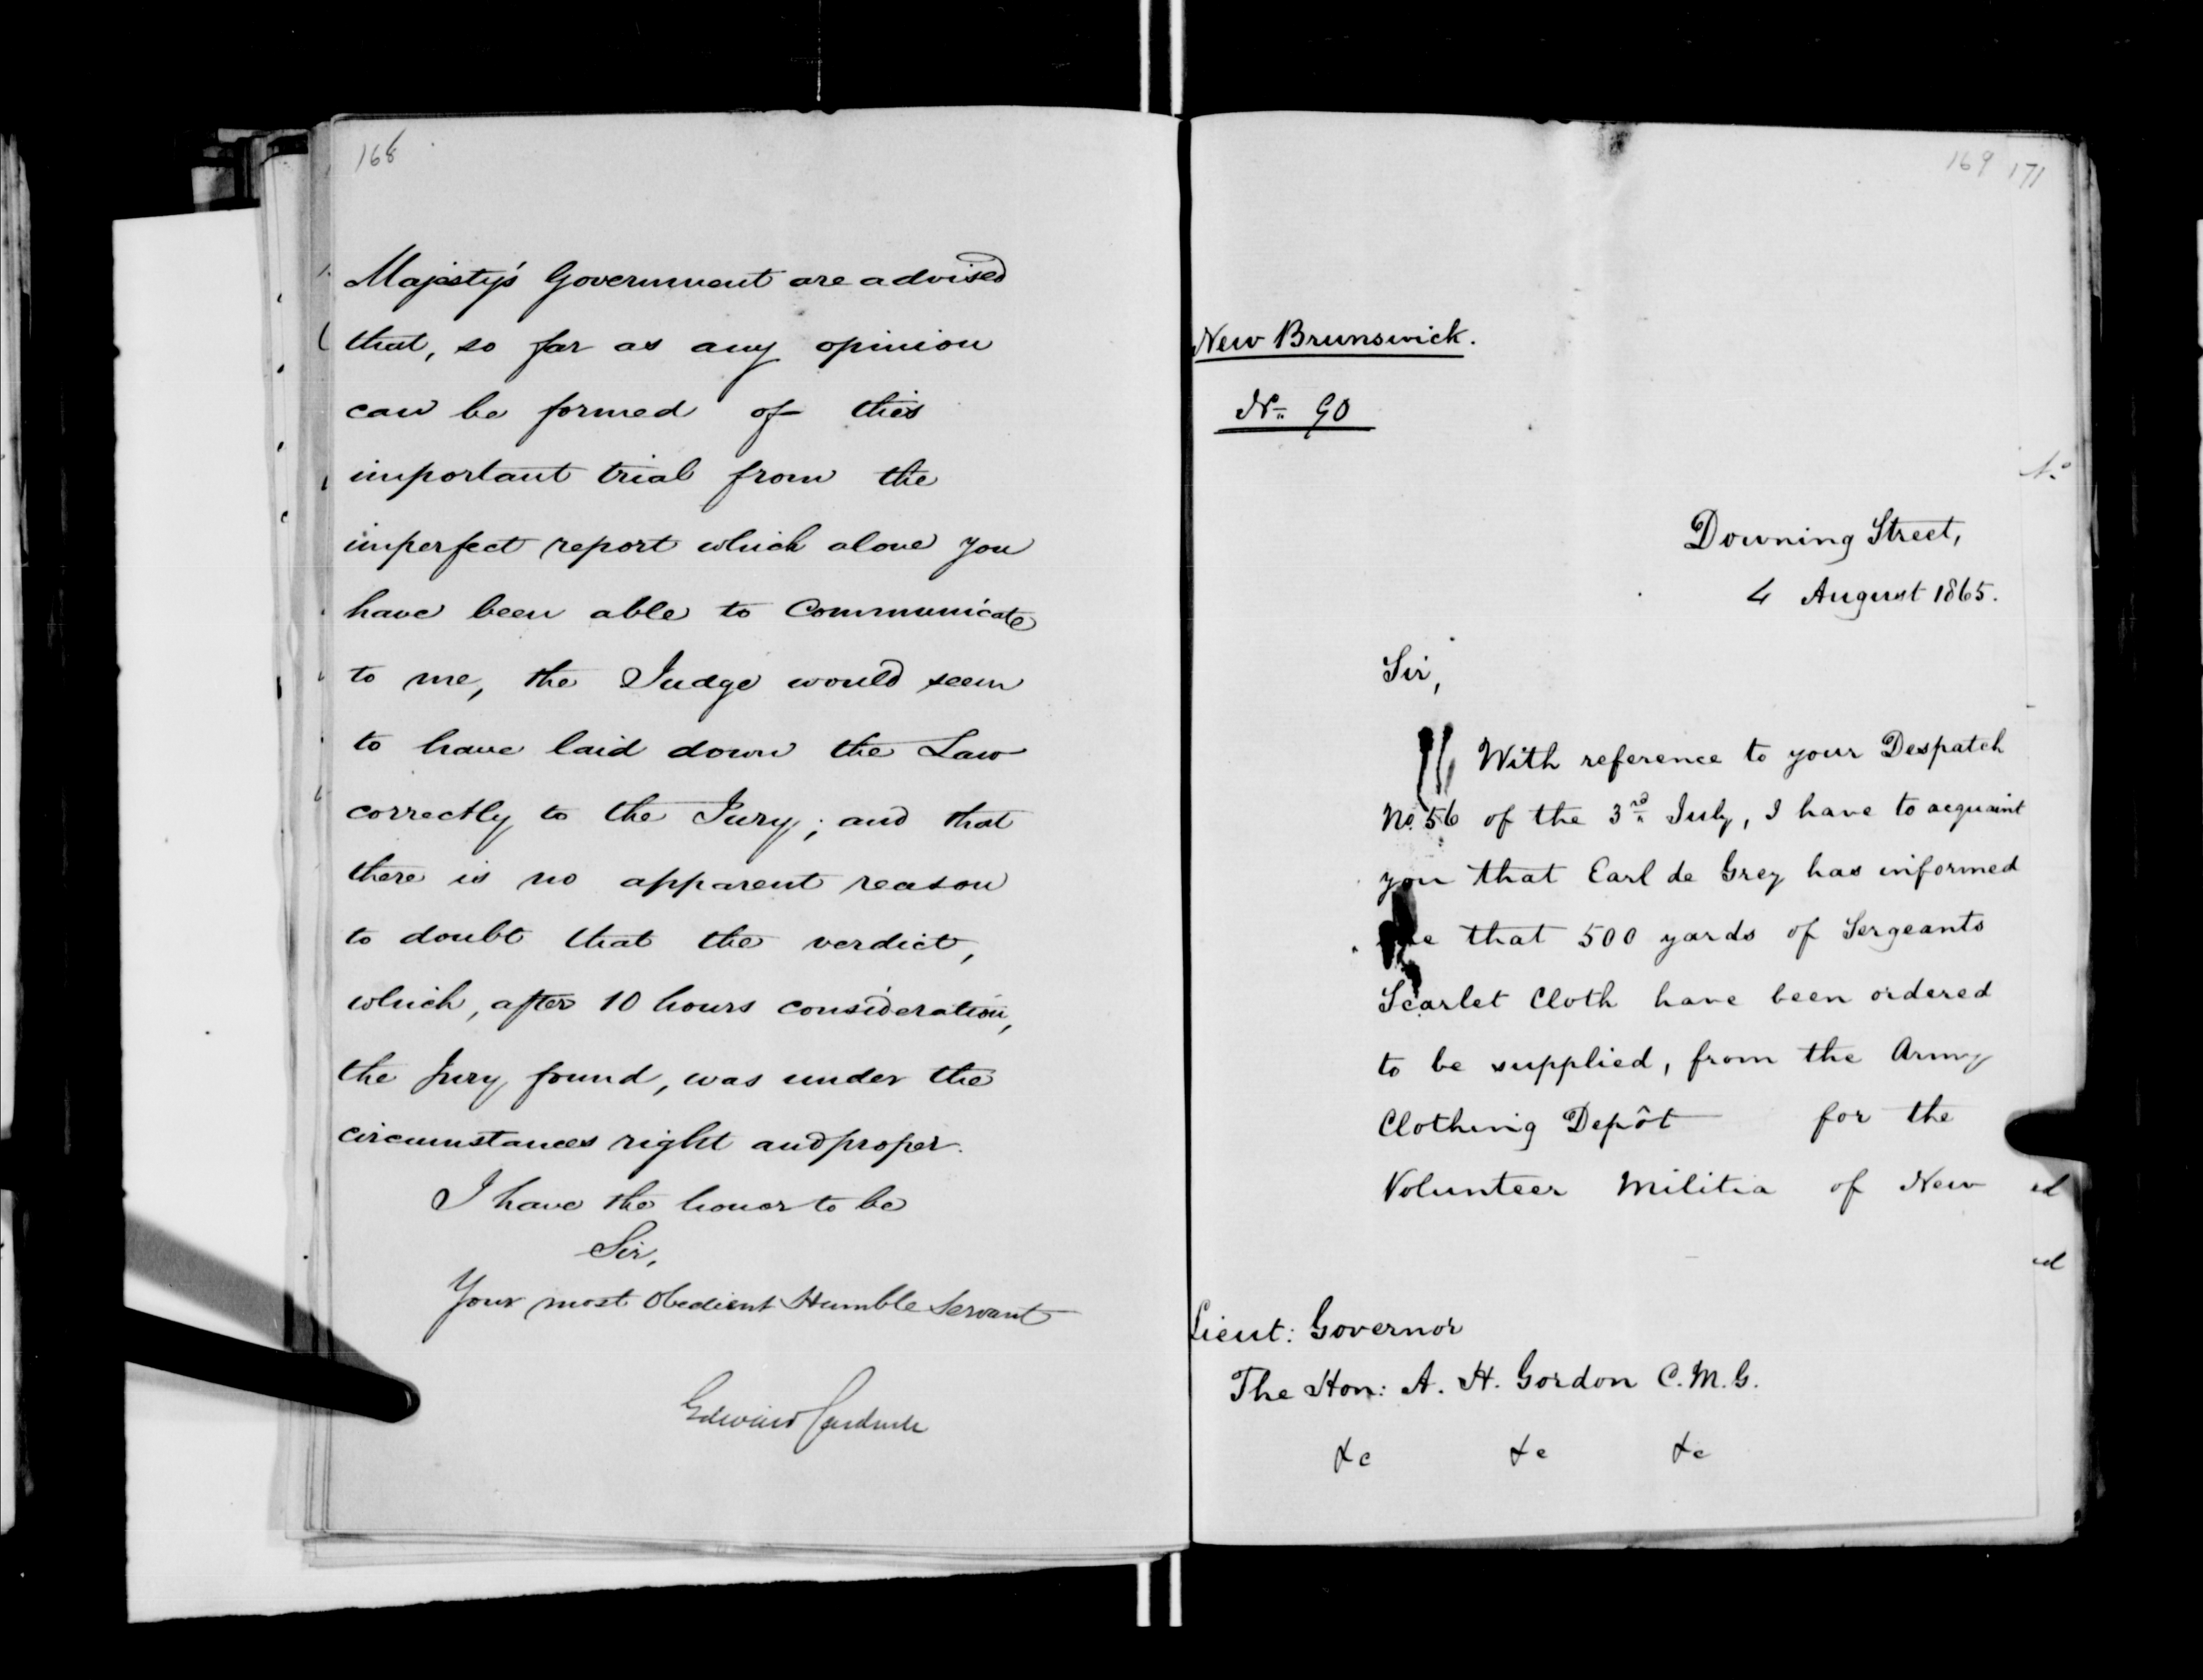 168
Majesty's Government are advised
that, so far as any opinion
can be formed of this
important trial from the
imperfect report which alone you
have been able to Communicate
to me, the Judge would seem
to have laid down the Law
correctly to the Jury; and that
there is no apparent reason
to doubt that the verdict,
which, after 10 hours consideration,
the Jury found, was under the
circumstances right and proper.
I have the honor to be
Sir,
Your most Obedient Humble Servant
Edward Cardwell
169 171
New Brunswick.
No. 90
Downing Street,
4 August 1865.
Sir,
With reference to your Despatch
No. 56 of the 3rd July, I have to acquaint
you that Earl de Grey has informed
me that 500 yards of Sergeants
Scarlet Cloth have been ordered
to be supplied, from the Army
Clothing Depôt for the
Volunteer Militia of New
Lieut: Governor
The Hon: A. H. Gordon C.M.G.
&c &c &c
No
ed
ed